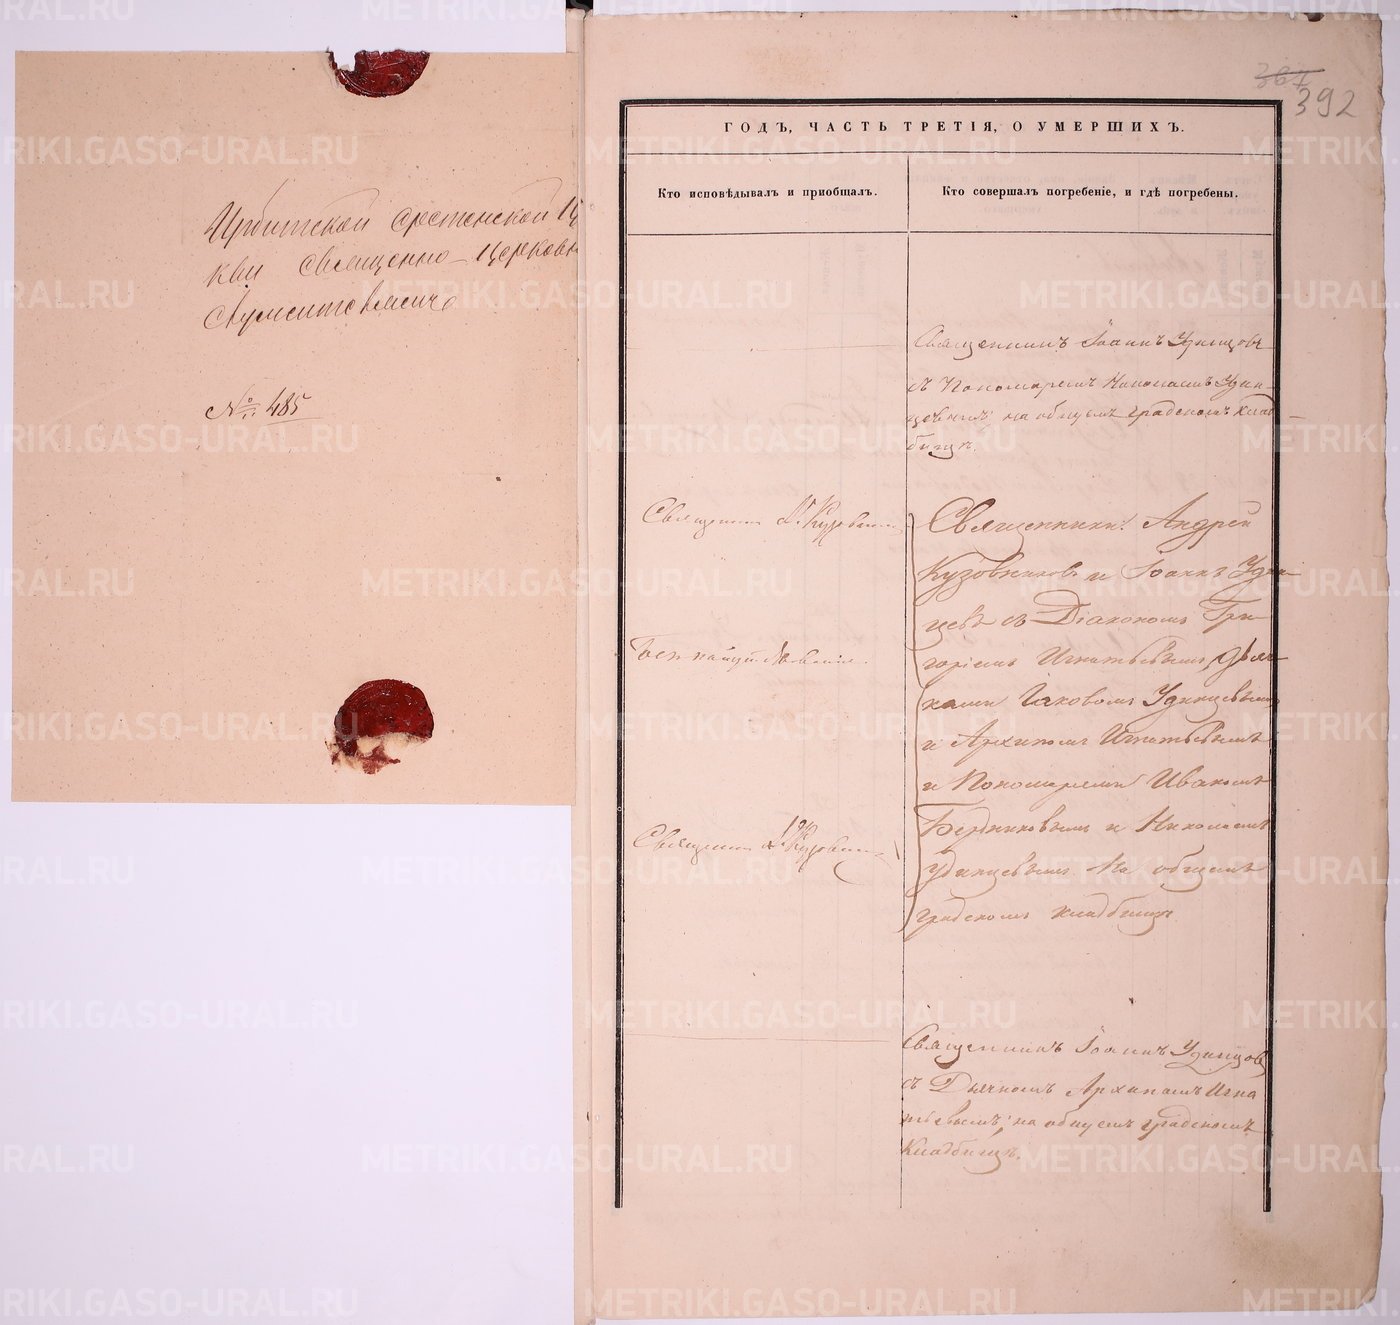 Ирбитской арестенской Це
кви священно-церковн
служителямъ
№ 485
367
392
ГОДЪ, ЧАСТЬ ТРЕТІЯ, О УМЕРШИХЪ.
Кто исповѣдывалъ и пріобщалъ.
Кто совершалъ погребеніе, и гдѣ погребены.
Священникъ Іоаннъ Удинцовъ
съ Пономаремъ Николаемъ Удин-
цевымъ; на общемъ градскомъ клад-
бищѣ.
Священникъ А. Кузовник
Священники: Андрей
Кузовниковъ и Іоаннъ Удин-
цевъ съ Діакономъ Гри-
горіемъ Игнатьевымъ, дьяч-
ками Іаковомъ Удинцевымъ
и Архипомъ Игнатьевымъ
и Пономарями Иваномъ
Бердниковымъ и Николаемъ
Удинцевымъ. На общемъ
градскомъ кладбищѣ.
Безъ напутствованія.
Священникъ А. Кузовник
Священникъ Іоаннъ Удинцовъ
съ Дьячкомъ Архипомъ Игна
тьевымъ; на общемъ градскомъ
Кладбищѣ.
METRIKI.GASO-URAL.RU